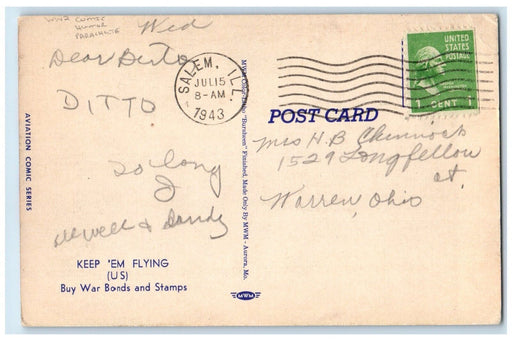 WW2 COMIC
HUMOR
PARACHUTE
Wed
Dear Berto
DITTO
So long
Newell & Dandy
KEEP 'EM FLYING
(US)
Buy War Bonds and Stamps
AVIATION COMIC SERIES
SALEM, ILL.
JUL 15
8-AM
1943
"Burnheen" Finished, Made Only By MWM - Aurora, Mo.
MWM
UNITED
STATES
POSTAGE
1 CENT 1
POST CARD
Mrs H. B. Chinnock
1529 Longfellow
st.
Warren, Ohio